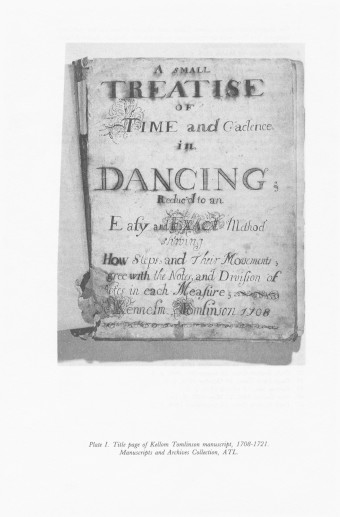 A SMALL
TREATISE
OF
TIME and Cadence
in
DANCING;
Reduc'd to an
Easy and EXACT Method
shewing
How Steps and Their Movements,
agree with the Notes, and Division of
Notes in each Measure;
Kenelm Tomlinson 1708
Plate 1. Title page of Kellom Tomlinson manuscript, 1708-1721.
Manuscripts and Archives Collection, ATL.